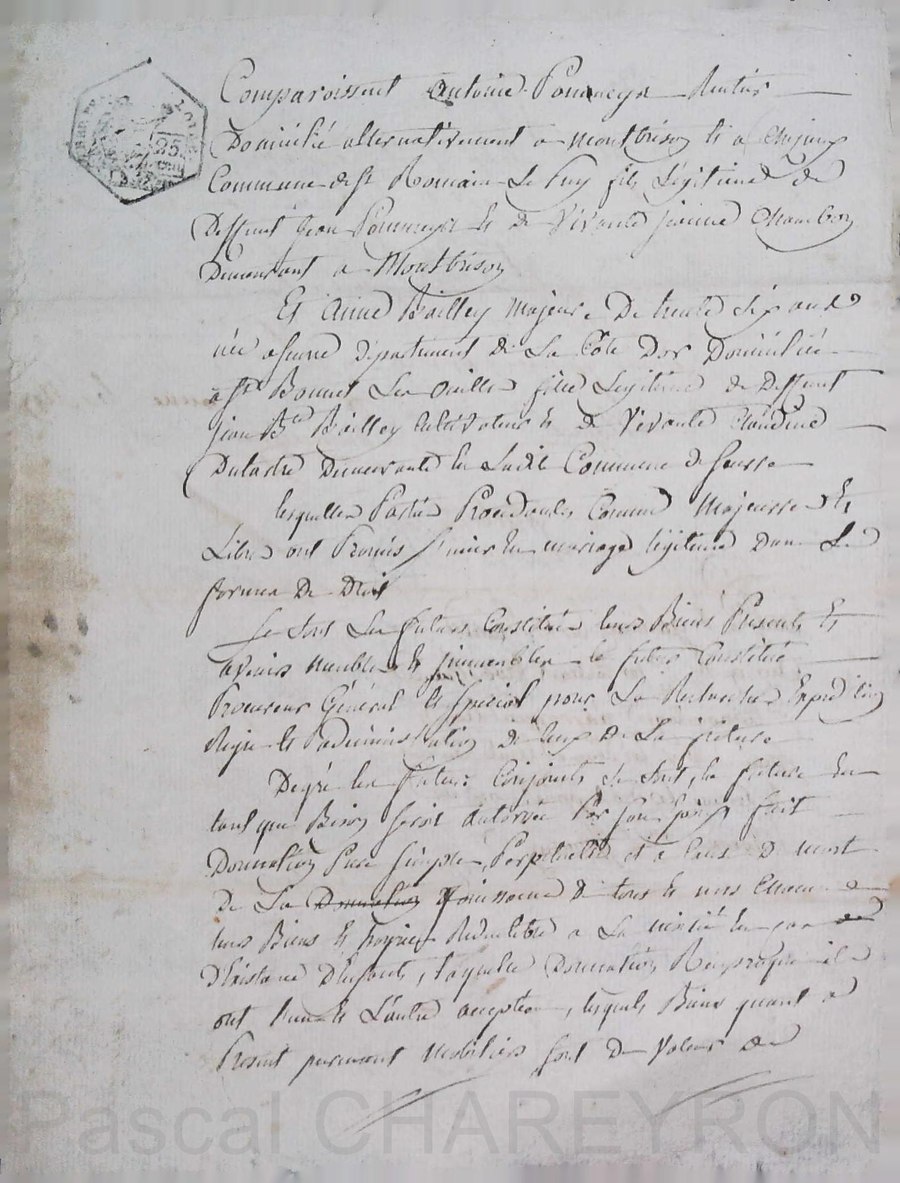 Comparoissent Antoine Pommeyr Rentier
Domicilié alternativement a montbrison et a
Commune de St Romain Le Puy fils Légitime de
Deffunt Jean Pommeyr et de Vivante jeanne Chambon
Demeurant a Montbrison
Et Anne Bailley Majeure De trente six ans
née a département de La Côte Dor Domiciliée
a St Bonnet Les Ouilles fille Legitime de Deffunt
jean Bte Bailley Cultivateur et de Vivante Claudine
Demeurante en Ladite Commune de
lesquelles Parties Procédantes Comme Majeures Et
Libres ont Promis S'unir En mariage légitime Dans Les
formes De Droit
Se sont Les futurs Constitués leurs Biens Présents Et
avenir meubles et immeubles le futur Constitué
Procureur Général et Spécial pour La Recherche Expédition
Régie et administration de Ceux De La future
Degré les futurs Conjoints se sont, la future En
tant que Besoin Seroit Autorisée Par Son fait
Donnation Pure Simple Perpetuelle et a Cause De mort
De La Donnation Jouissance De tous et uns Chacuns
leurs Biens et Reductible a La moitié En cas de
D'Existance D'Enfants, laquelle Donnation Reciproque ils
ont L'un et L'autre acceptée, lesquels Biens quant a
Présent purement Mobiliers sont De Valeur de
Pascal CHAREYRON